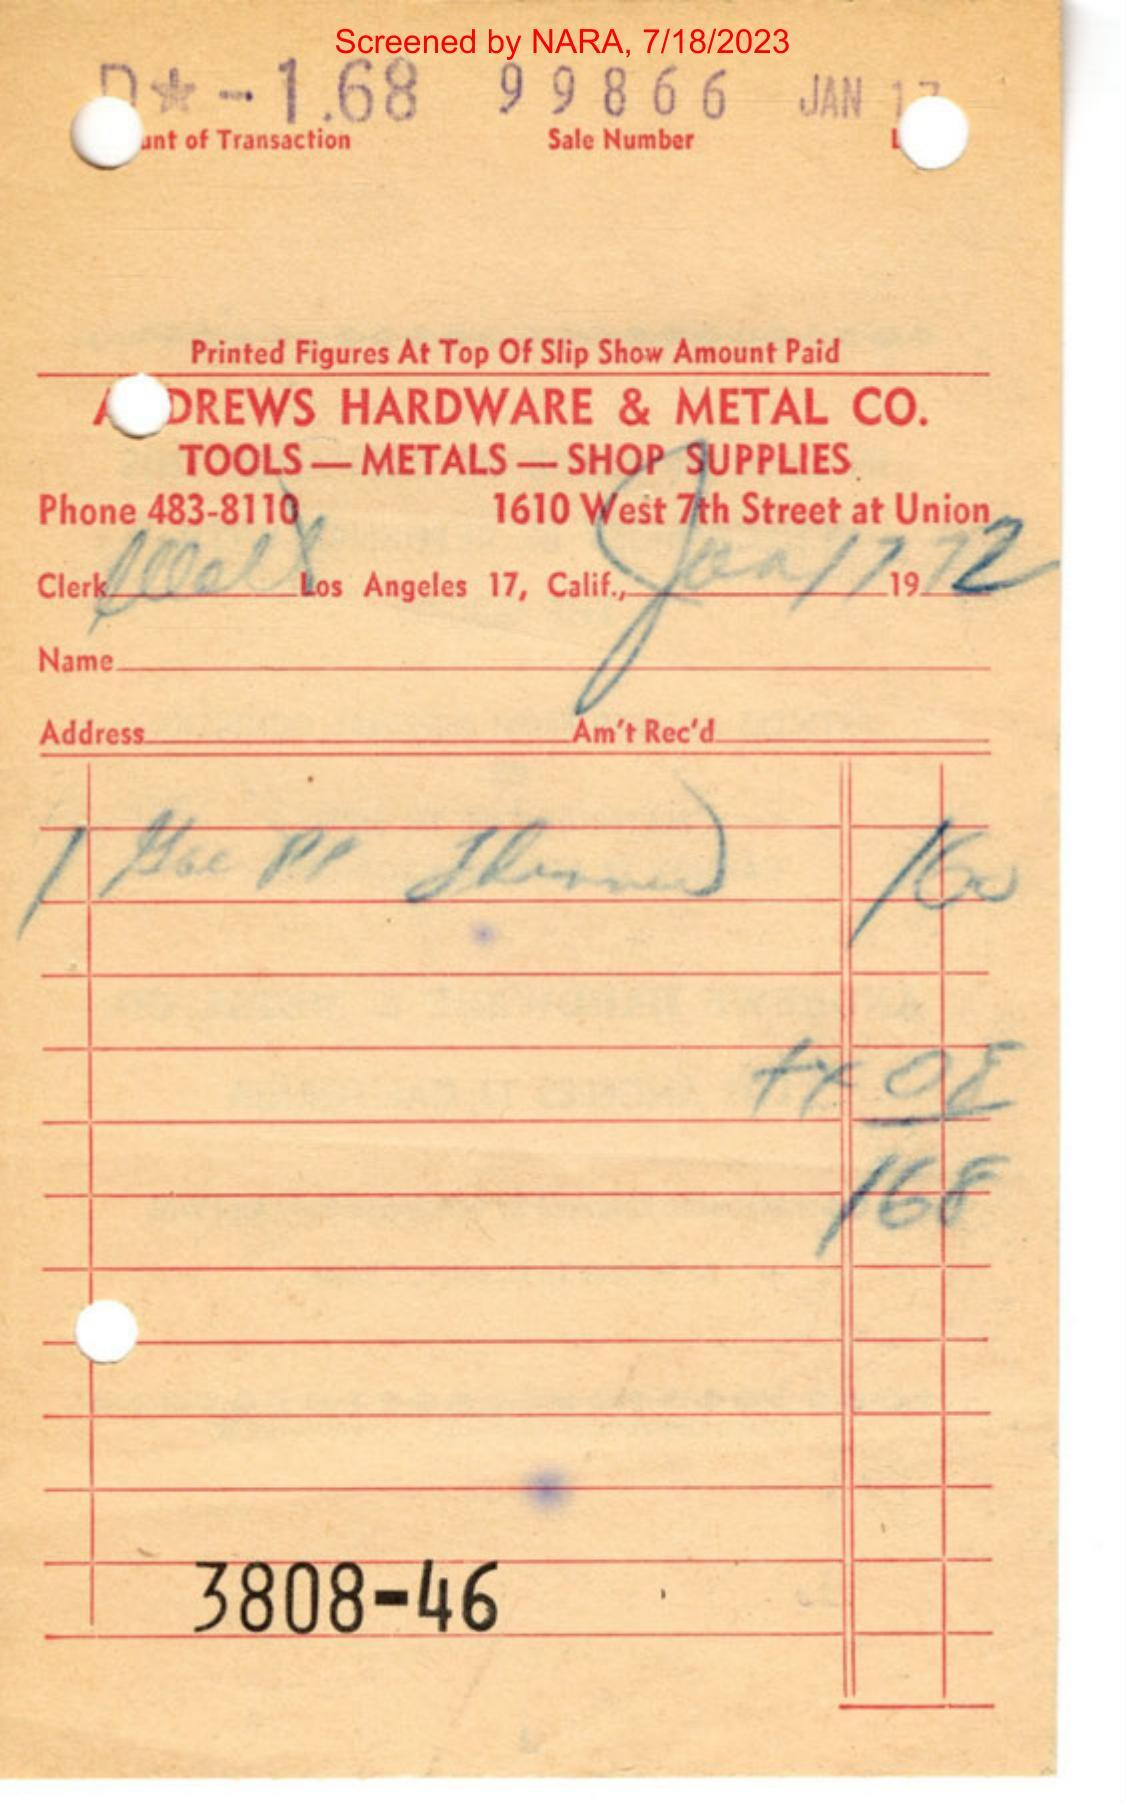 Screened by NARA, 7/18/2023
D☆-1.68 99866 JAN 17
unt of Transaction Sale Number
Printed Figures At Top Of Slip Show Amount Paid
A DREWS HARDWARE & METAL CO.
TOOLS — METALS — SHOP SUPPLIES
Phone 483-8110 1610 West 7th Street at Union
Clerk Walt Los Angeles 17, Calif., Jan 17 19 72
Name
Address Am't Rec'd
1 Thinner 160
tx 08
168
3808-46